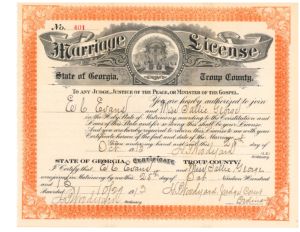 No. 401
Marriage License
State of Georgia, Troup County.
To any Judge, Justice of the Peace, or Minister of the Gospel.
You are hereby authorized to join
E C Evans and Miss Sallie
in the Holy State of Matrimony according to the Constitution and
Laws of this State and for so doing this shall be your License
And you are hereby required to return this License to me with your
Certificate hereon of the fact and date of the Marriage.
Given under my hand and seal this 28th day of
Oct 191
STATE OF GEORGIA, CERTIFICATE TROUP COUNTY:
I Certify that E C Evans and Miss Sallie
were joined in Matrimony by me this 28th day of Oct Nineteen Hundred
and